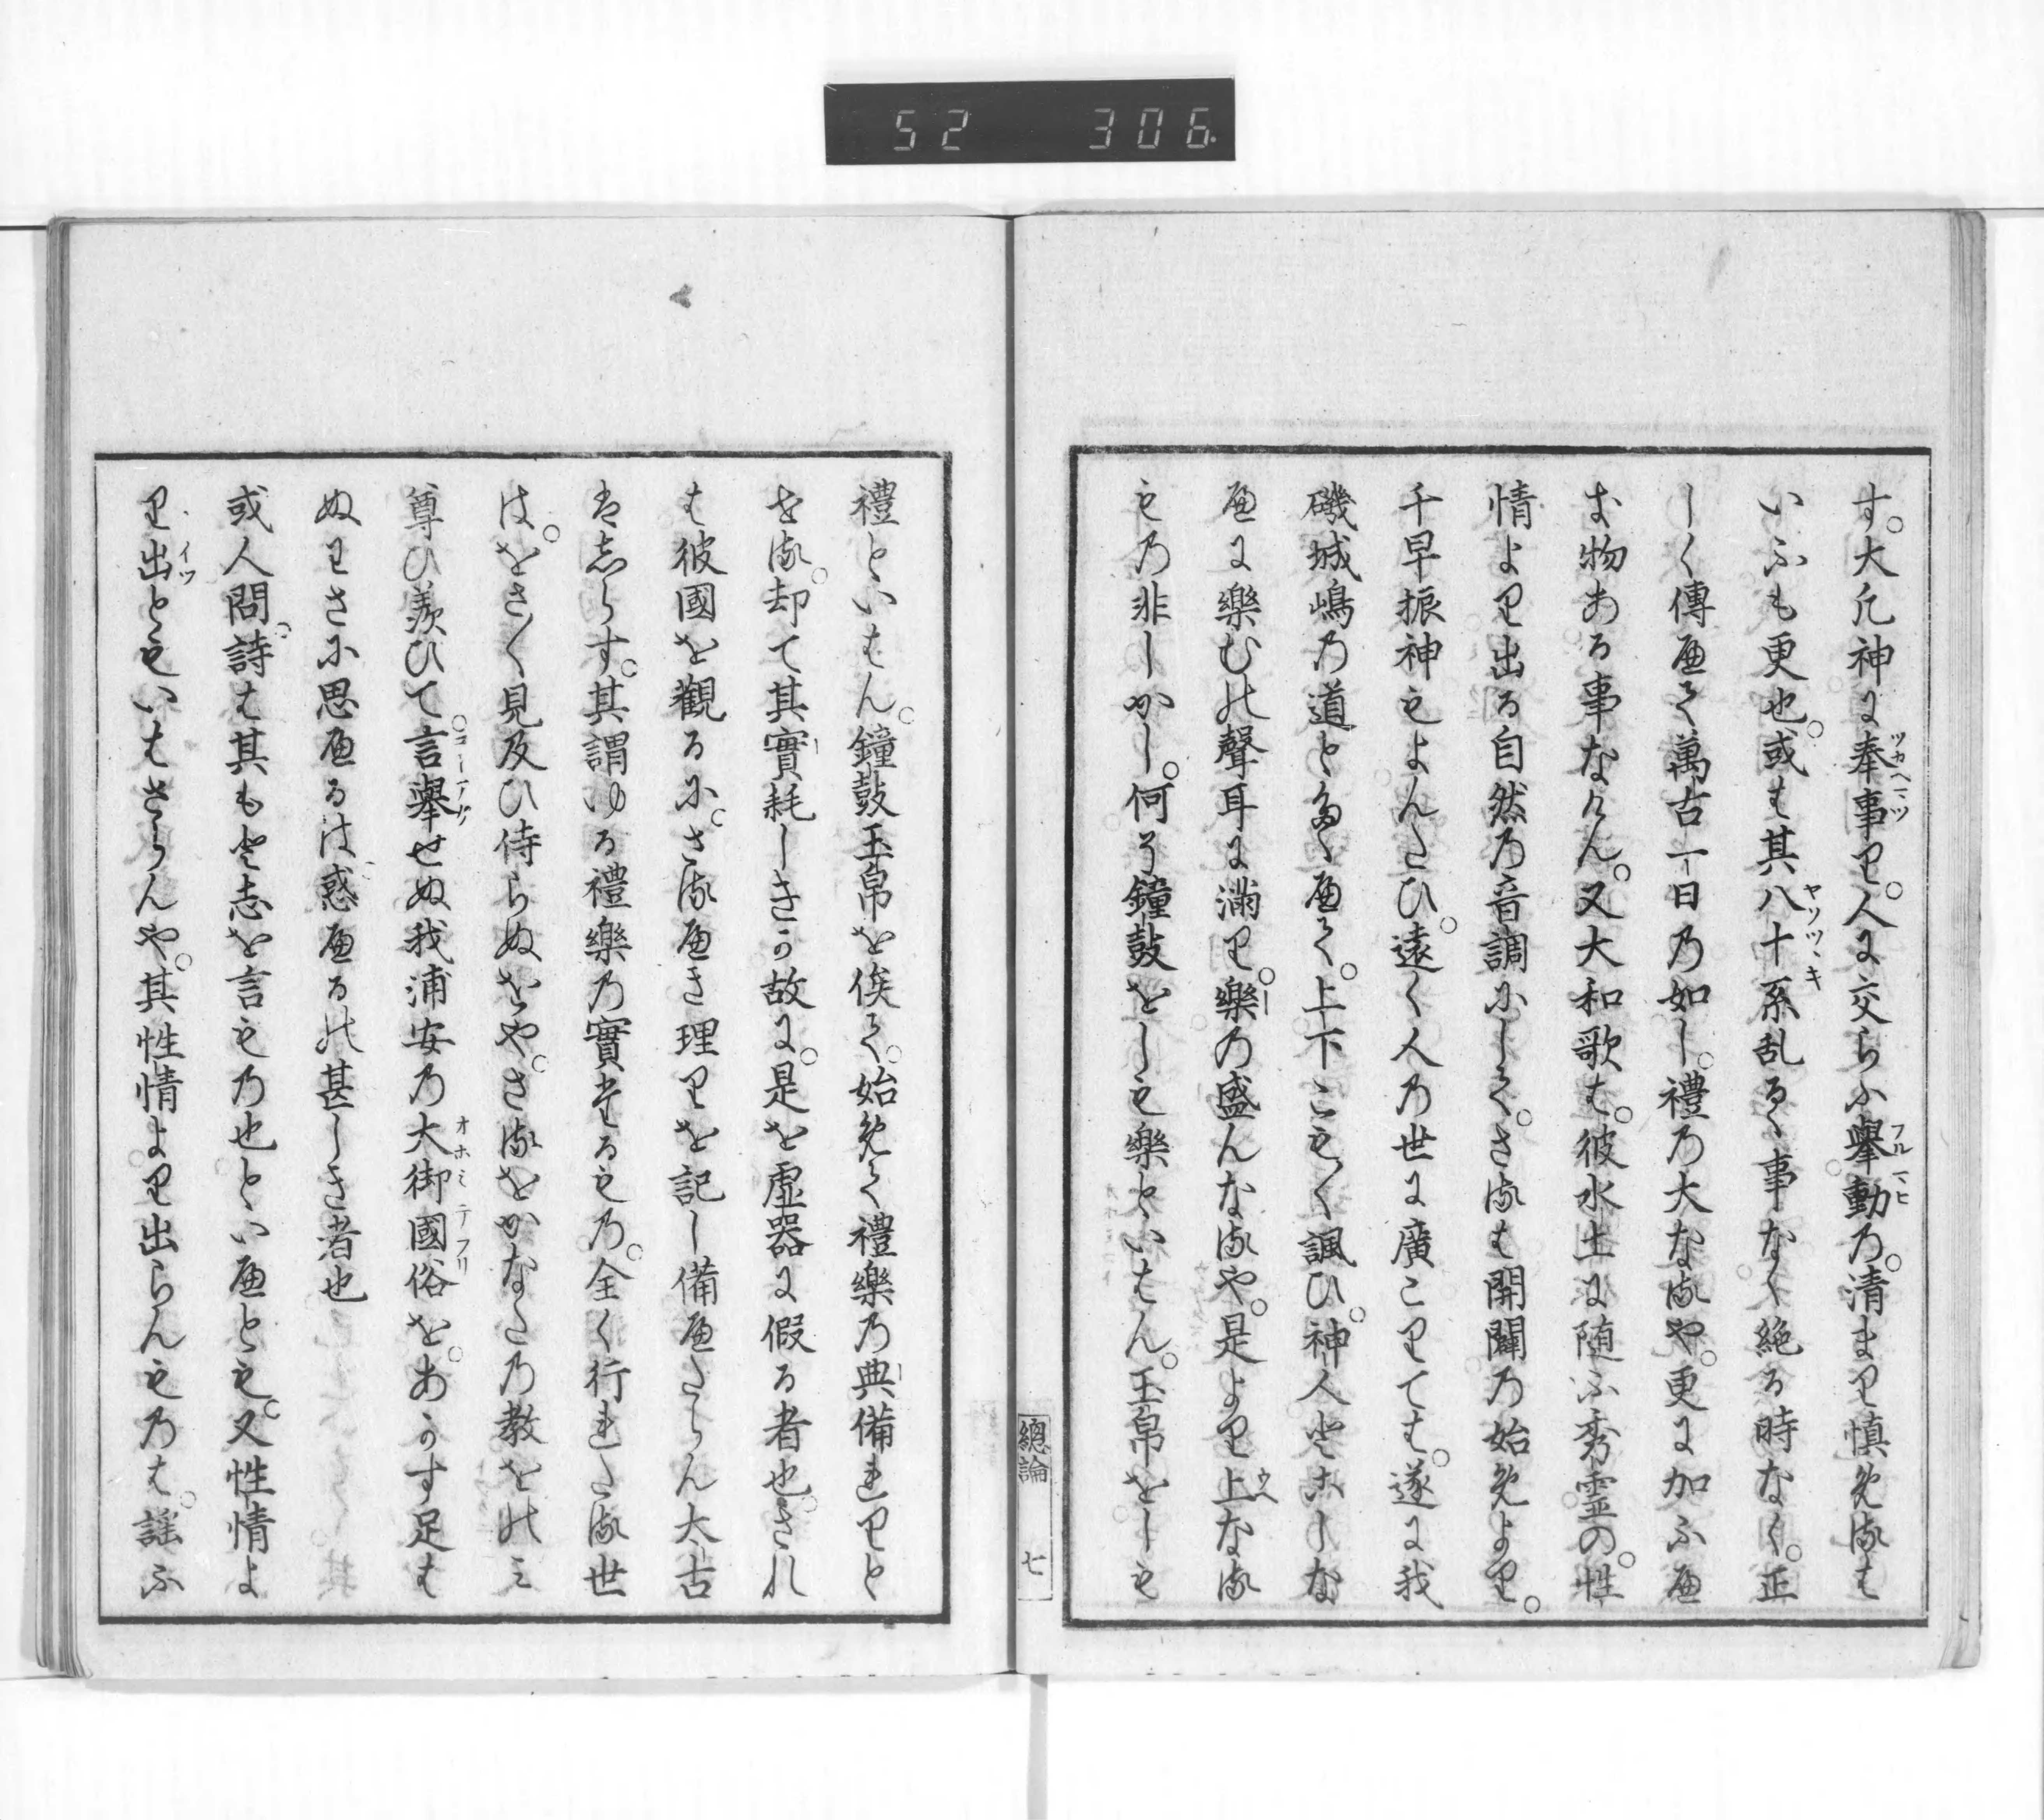 52 306
す。大凡神に奉事り。人に交らふ擧動の。清まり慎める は
いふも更也。或は其八十系乱るゝ事なく絶る時なく。正
しく傳へて萬古一日の如し。禮の大なるや。更に加ふへ
き物ある事なけん。又大和歌は。彼水土に随ふ秀霊の。性
情より出る自然の音調にして。さるは開闢の始めより。
千早振神もよんたひ。遠く人の世に廣こりては。遂に我
磯城嶋の道とたゝへて。上下こもく諷ひ。神人とこしな
へに樂むの聲耳に満り。樂の盛んなるや。是より上なる
もの非しかし。何そ鐘鼓をしも樂といはん。玉帛をしも
總論 七
禮といはん。鐘鼓玉帛を俟て。始めて禮樂の典備れりと
せる。却て其實耗しきか故に。是を虚器に假る者也。され
は彼國を觀るに。さるへき理りを記し備へたらん太古
はしらす。其謂ゆる禮樂の實するもの。全く行れたる世
は。をさく見及ひ侍らぬそや。さるをかなたの教をのミ
尊ひ羨ひて。言擧せぬ我浦安の大御國俗を。あかす足は
ぬわさに思へるは惑へるの甚しき者也
或人問。詩は其もと志を言もの也といへとも。又性情よ
り出ともいはさらんや。其性情より出らんものは。謡ふ